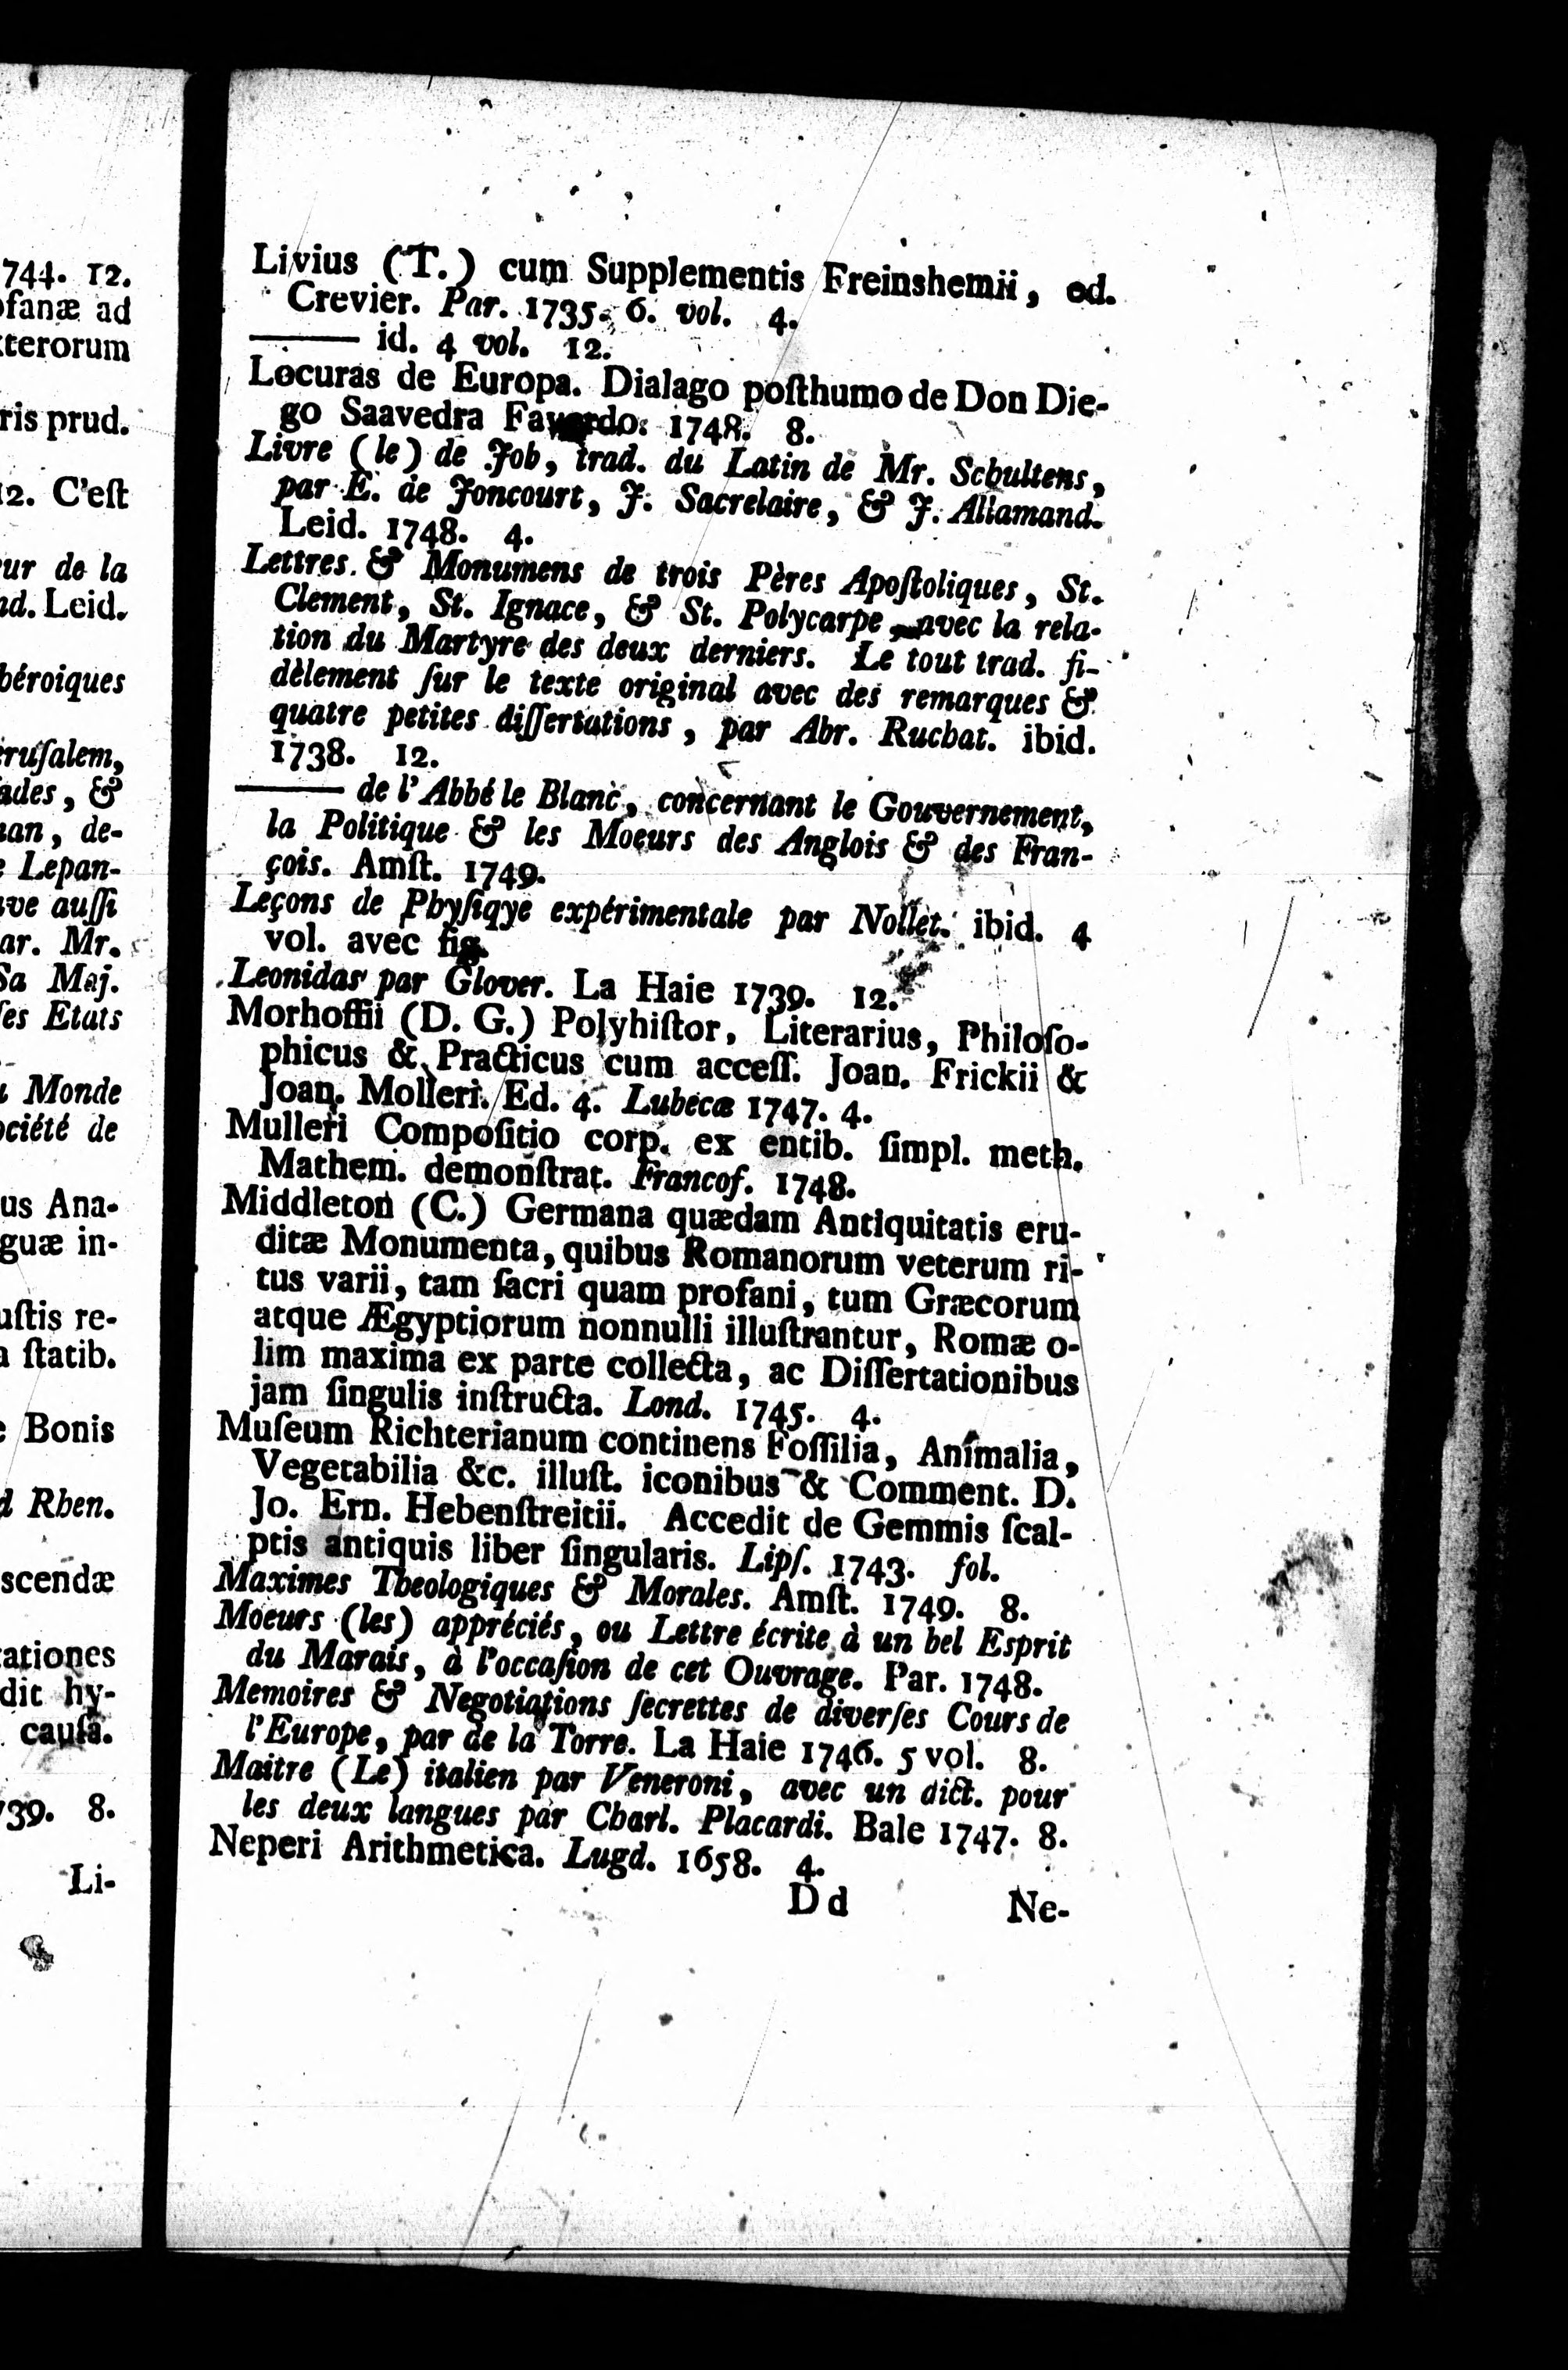 744. 12.
ofanæ ad
cterorum
ris prud.
12. C'eſt
ur de la
nd. Leid.
héroiques
eruſalem,
ades, &
nan, de-
e Lepan-
uve auſſi
ar. Mr.
Sa Maj.
ſes Etats
u Monde
ociété de
us Ana-
guæ in-
uſtis re-
a ſtatib.
e Bonis
d Rhen.
scendæ
tationes
dit hy-
cauſa.
739. 8.
Li-
Livius (T.) cum Supplementis Freinshemii, ed.
Crevier. Par. 1735. 6. vol. 4.
——— id. 4 vol. 12.
Locuras de Europa. Dialago poſthumo de Don Die-
go Saavedra 1748. 8.
Livre (le) de Job, trad. du Latin de Mr. Schultens,
par E. de Joncourt, J. Sacrelaire, & J. Allamand.
Leid. 1748. 4.
Lettres & Monumens de trois Pères Apoſtoliques, St.
Clement, St. Ignace, & St. Polycarpe, avec la rela-
tion du Martyre des deux derniers. Le tout trad. fi-
dèlement ſur le texte original avec des remarques &
quatre petites diſſertations, par Abr. Ruchat. ibid.
1738. 12.
——— de l'Abbé le Blanc, concernant le Gouvernement,
la Politique & les Moeurs des Anglois & des Fran-
çois. Amſt. 1749.
Leçons de Phyſiqye expérimentale par Nollet. ibid. 4
vol. avec fig.
Leonidas par Glover. La Haie 1739. 12.
Morhoffii (D. G.) Polyhiſtor, Literarius, Philoſo-
phicus & Practicus cum acceſſ. Joan. Frickii &
Joan. Molleri. Ed. 4. Lubecæ 1747. 4.
Mulleri Compoſitio corp. ex entib. ſimpl. meth.
Mathem. demonſtrat. Francof. 1748.
Middleton (C.) Germana quædam Antiquitatis eru-
ditæ Monumenta, quibus Romanorum veterum ri-
tus varii, tam ſacri quam profani, tum Græcorum
atque Ægyptiorum nonnulli illuſtrantur, Romæ o-
lim maxima ex parte collecta, ac Diſſertationibus
jam ſingulis inſtructa. Lond. 1745. 4.
Muſeum Richterianum continens Foſſilia, Animalia,
Vegetabilia &c. illuſt. iconibus & Comment. D.
Jo. Ern. Hebenſtreitii. Accedit de Gemmis ſcal-
ptis antiquis liber ſingularis. Lipſ. 1743. fol.
Maximes Theologiques & Morales. Amſt. 1749. 8.
Moeurs (les) appréciés, ou Lettre écrite à un bel Esprit
du Marais, à l'occaſion de cet Ouvrage. Par. 1748.
Memoires & Negotiations ſecrettes de diverſes Cours de
l'Europe, par de la Torre. La Haie 1746. 5 vol. 8.
Maitre (Le) italien par Veneroni, avec un dict. pour
les deux langues par Charl. Placardi. Bale 1747. 8.
Neperi Arithmetica. Lugd. 1658. 4.
D d Ne-